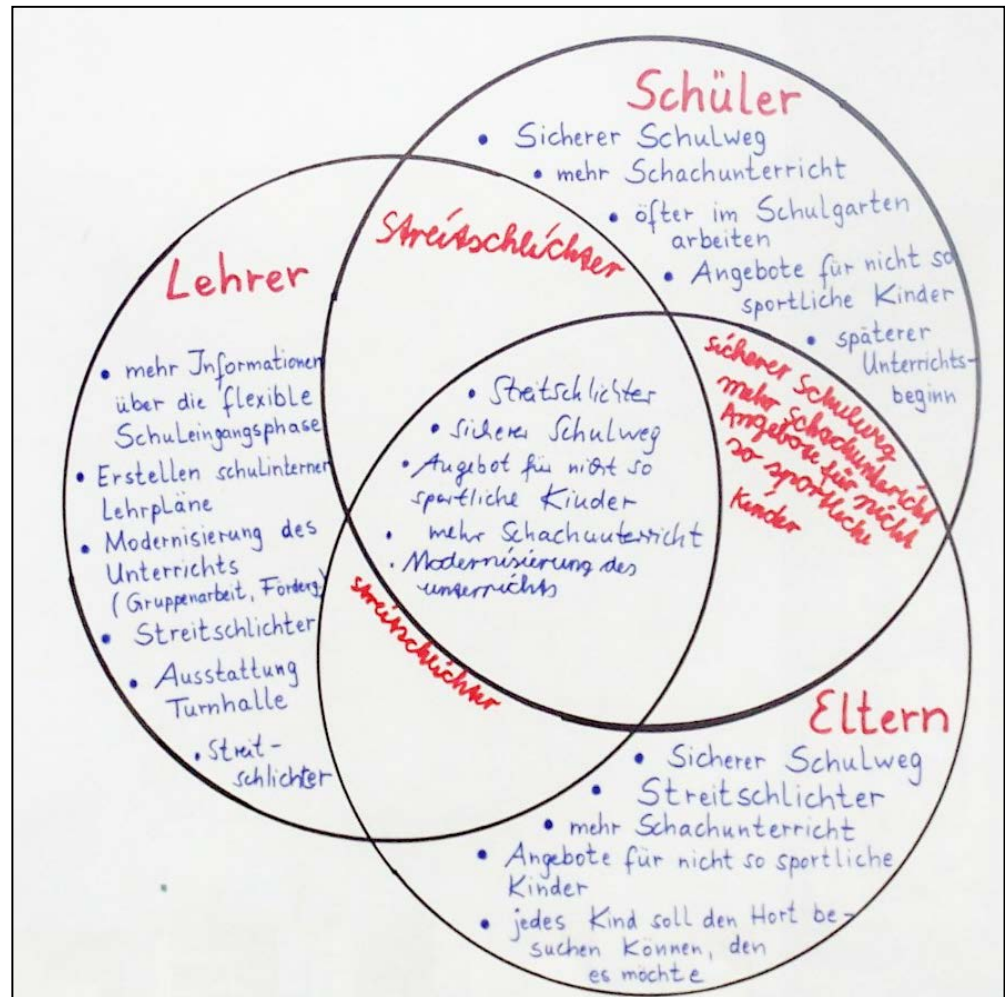 Schüler
• Sicherer Schulweg
• mehr Schachunterricht
• öfter im Schulgarten
arbeiten
• Angebote für nicht so
sportliche Kinder
• späterer
Unterrichts-
beginn
Streitschlichter
Lehrer
• mehr Informationen
über die flexible
Schuleingangsphase
• Erstellen schulinterner
Lehrpläne
• Modernisierung des
Unterrichts
(Gruppenarbeit, Förderg)
• Streitschlichter
• Ausstattung
Turnhalle
• Streit-
schlichter
• Streitschlichter
• Sicherer Schulweg
• Angebot für nicht so
sportliche Kinder
• mehr Schachunterricht
• Modernisierung des
unterrichts
sicherer Schulweg
mehr Schachunterricht
Angebote für nicht
so sportliche
Kinder
Streitschlichter
Eltern
• Sicherer Schulweg
• Streitschlichter
• mehr Schachunterricht
• Angebote für nicht so sportliche
Kinder
• jedes Kind soll den Hort be-
suchen können, den
es möchte